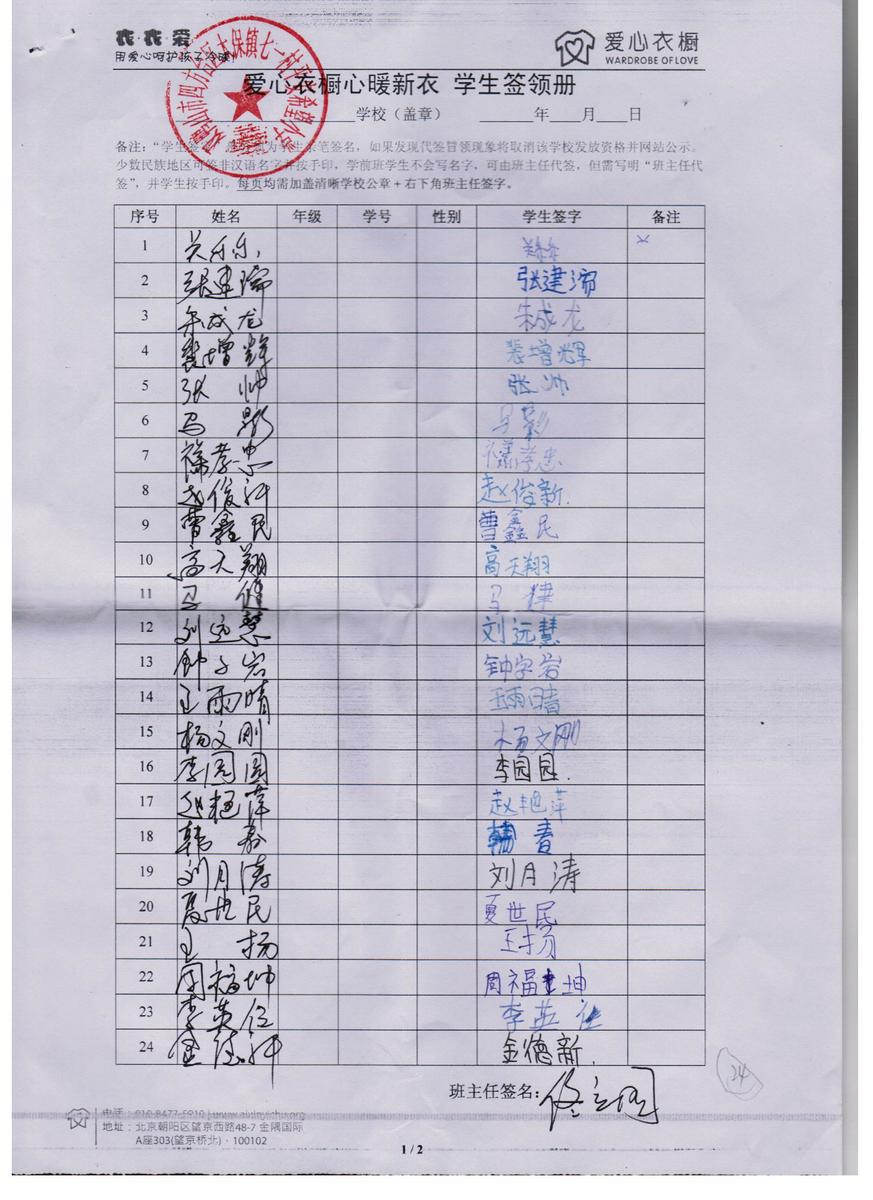 衣衣爱
用爱心呵护孩子冷暖!
爱心衣橱
WARDROBE OF LOVE
爱心衣橱心暖新衣 学生签领册
学校（盖章） 年 月 日
少数民族地区可签非汉语名字并按手印，学前班学生不会写名字，可由班主任代签，但需写明“班主任代
签”，并学生按手印。每页均需加盖清晰学校公章+右下角班主任签字。
序号 姓名 年级 学号 性别 学生签字 备注
1
2 张建瑞 张建瑞
3 朱成龙 朱成龙
4 裴增辉 裴增辉
5 张帅 张帅
6 马影 马影
7 孝忠 孝忠
8 赵俊新 赵俊新.
9 曹鑫民 曹鑫民
10 高天翔 高天翔
11 马健 马建
12 刘远慧 刘远慧
13 钟子岩 钟字岩
14 王雨晴 王雨晴
15 杨文刚 杨文刚
16 李圆圆 李园园.
17 赵艳萍 赵艳萍
18 韩春 韩春
19 刘月涛 刘月涛
20 夏世民 夏世民
21 王杨 王杨
22 周福坤 周福坤
23 李英 李英
24 金德新 金德新.
班主任签名:
24
电话：010-8477-5910 | www.aixinyichu.org
地址：北京朝阳区望京西路48-7 金隅国际
A座303(望京桥北)·100102
1 / 2